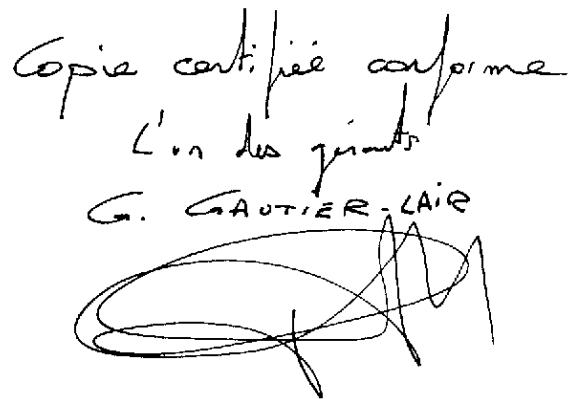 Copie certifiée conforme
L'un des gérants
G. GAUTIER-LAIR